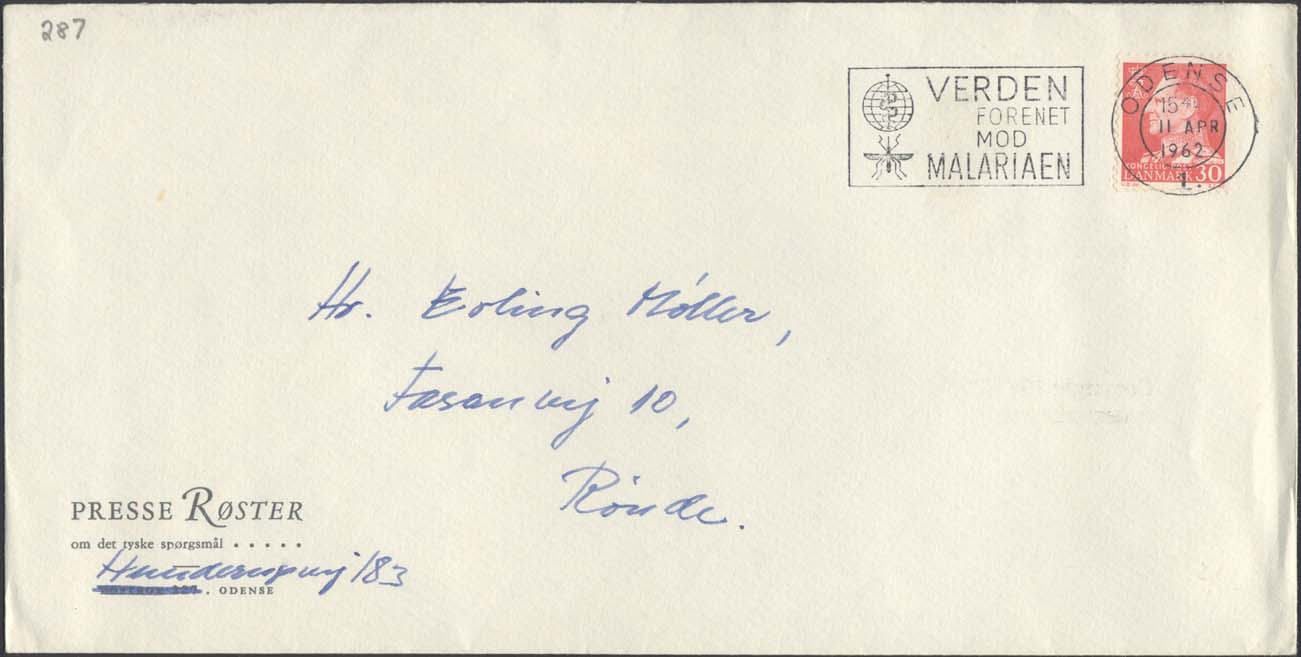 287
VERDEN
FORENET
MOD
MALARIAEN
ODENSE
15
11 APR
1962
1.
DANMARK 30
Hr. Erling Møller,
Fasanvej 10,
Rønde.
PRESSE RØSTER
om det tyske spørgsmål . . . . .
Hunderupvej 183
, ODENSE